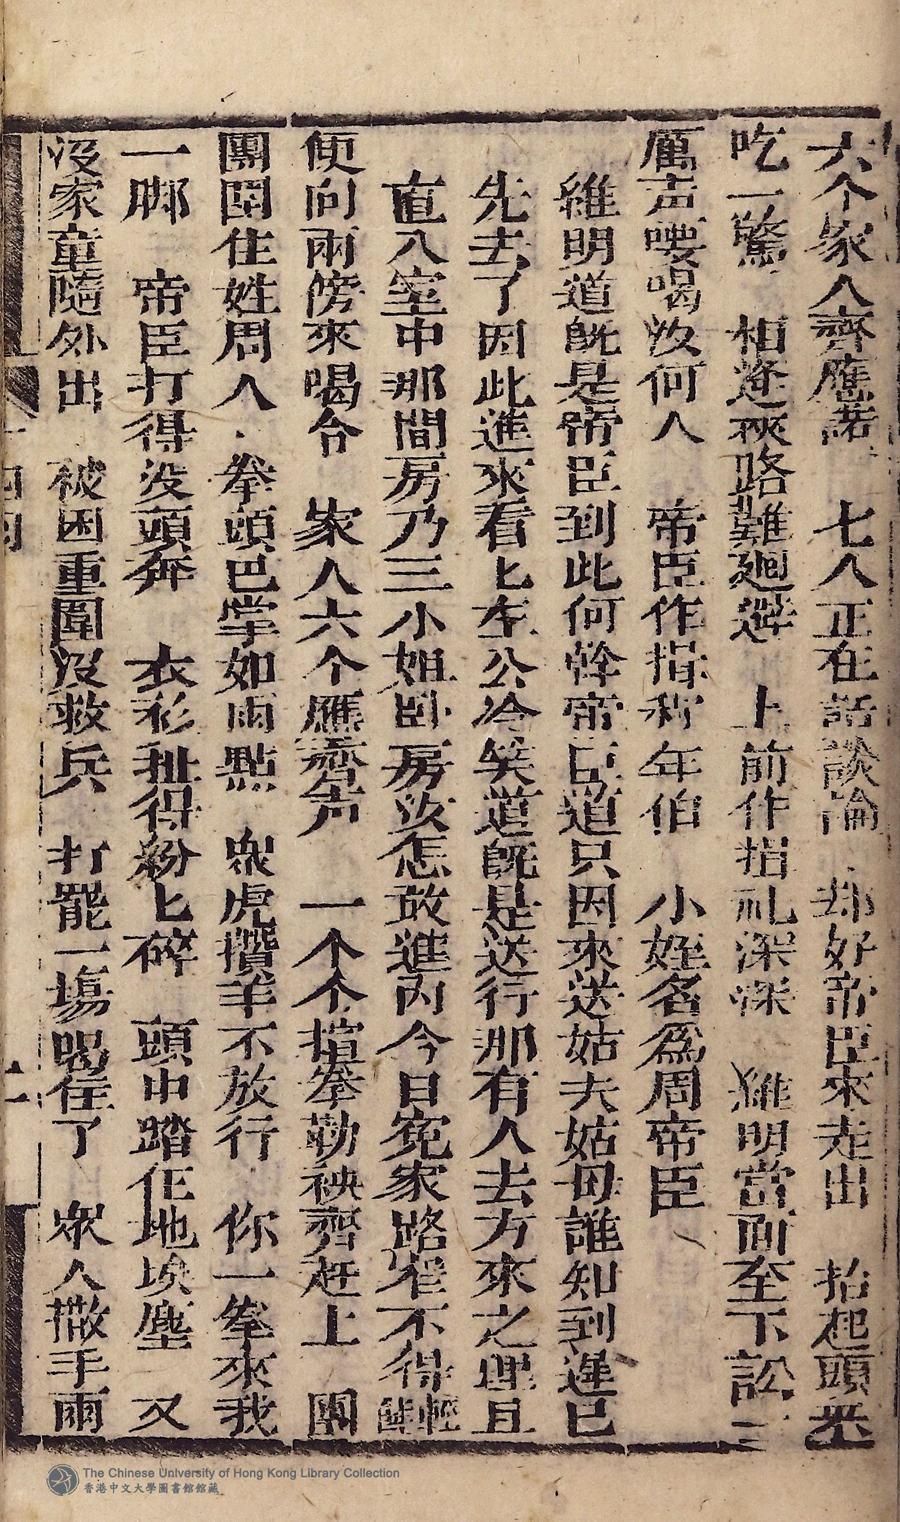 六个家人齊應諾 七人正在話談論 却好帝臣來走出 抬起頭來
吃一驚 相逢狹路難廻避 上前作揖礼深深 維明當面至下訟
厲声嘍喝汝何人 帝臣作揖称年伯 小姪名為周帝臣
維明道既是帝臣到此何幹帝臣道只因來送姑夫姑母誰知到遲已
先去了因此進來看匕左公冷笑道既是送行那有人去方來之理且
直入室中那間房乃三小姐卧房汝怎敢進內今日冤家路窄不得輕
便向兩傍來喝令 家人六个應齊声 一个个揎拳勒袂齊赶上 團
團圍住姓周人 拳頭巴掌如雨點 眾虎攢羊不放行 你一拳來我
一脚 帝臣打得没頭奔 衣衫扯得紛匕碎 頭巾踏任地埃塵 又
没家童隨外出 被困重圍没救兵 打罷一塲喝住了 眾人撒手兩
十四
The Chinese University of Hong Kong Library Collection
香港中文大學圖書館館藏